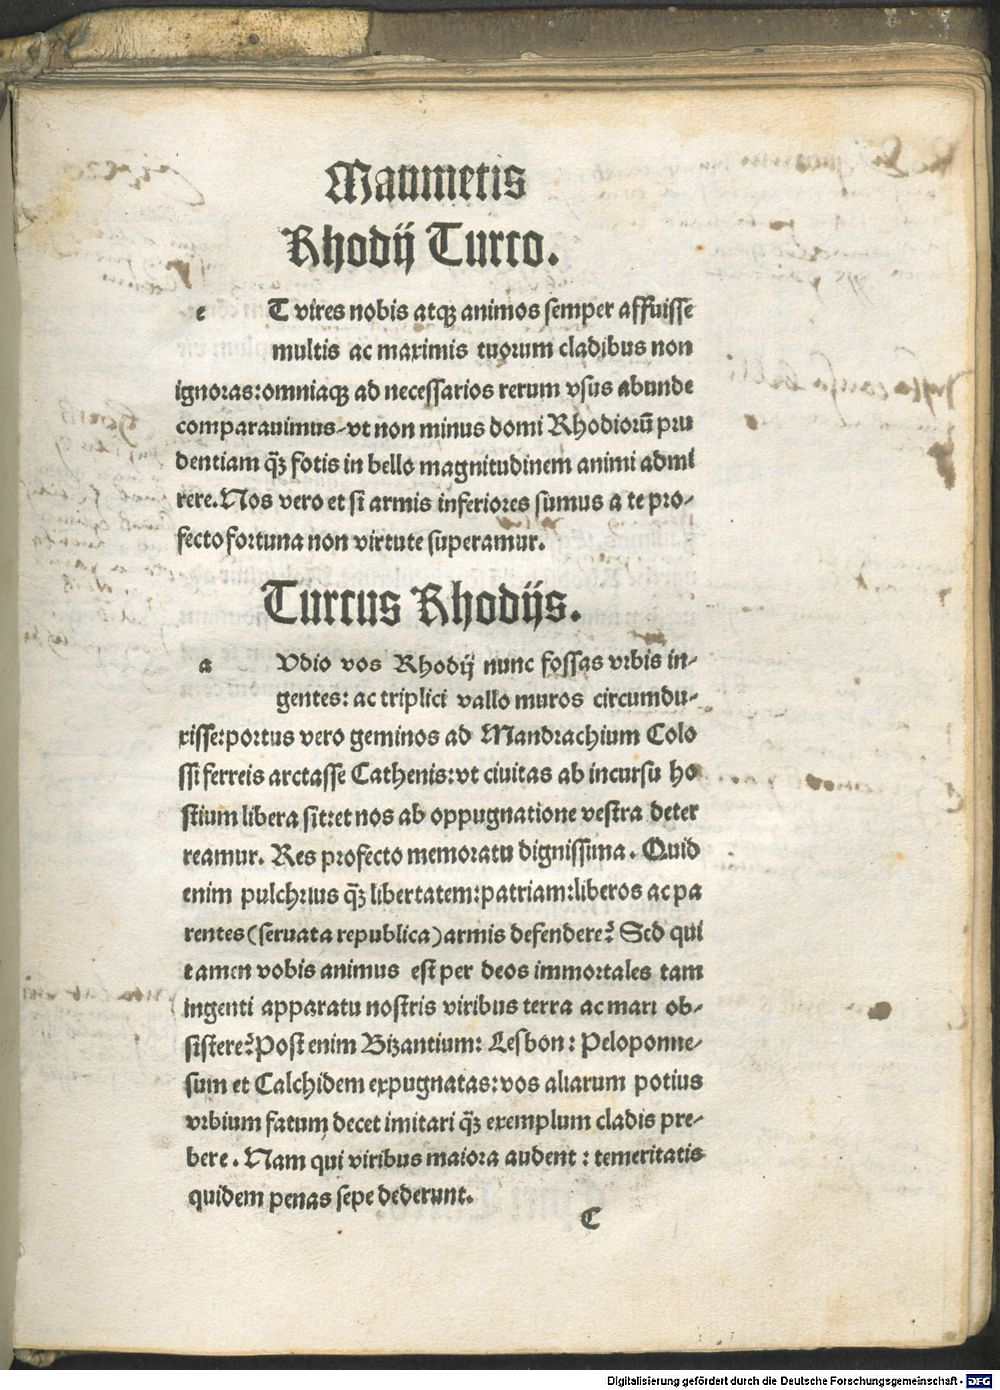 Maumetis
Rhodij Turco.
e T vires nobis atqȝ animos semper affuisse
multis ac maximis tuorum cladibus non
ignoras:omniaqȝ ad necessarios rerum vsus abunde
comparauimus-vt non minus domi Rhodiorū pru
dentiam qȝ̃ fotis in bello magnitudinem animi admi
rere.Nos vero et si armis inferiores sumus a te pro-
fecto fortuna non virtute superamur.
Turcus Rhodijs.
a Vdio vos Rhodij nunc fossas vrbis in-
gentes: ac triplici vallo muros circumdu-
xisse:portus vero geminos ad Mandrachium Colo
ssi ferreis arctasse Cathenis:vt ciuitas ab incursu ho
stium libera sit:et nos ab oppugnatione vestra deter
reamur. Res profecto memoratu dignissima. Quid
enim pulchrius qȝ̃ libertatem:patriam:liberos ac pa
rentes(seruata republica)armis defendere? Sed qui
tamen vobis animus est per deos immortales tam
ingenti apparatu nostris viribus terra ac mari ob-
sistere?Post enim Bizantium: Lesbon: Peloponne-
sum et Calchidem expugnatas:vos aliarum potius
vrbium fatum decet imitari qȝ̃ exemplum cladis pre-
bere. Nam qui viribus maiora audent: temeritatis
quidem penas sepe dederunt.
C
Digitalisierung gefördert durch die Deutsche Forschungsgemeinschaft - DFG